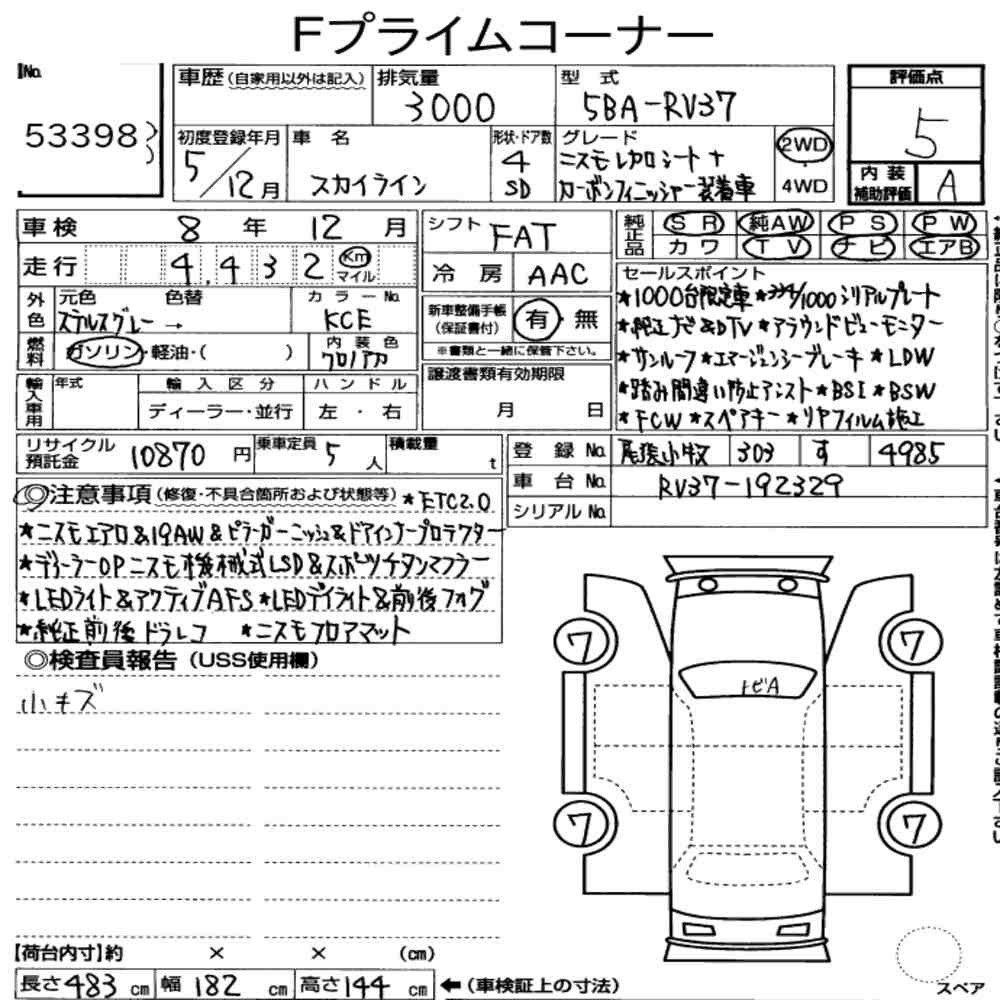 Fプライムコーナー
No.
53398
車歴(自家用以外は記入)
排気量
3000
型 式
5BA-RV37
評価点
5
初度登録年月
5/12月
車 名
スカイライン
形状・ドア数
4
SD
グレード
ニスモレカロシート+
カーボンフィニッシャー装着車
2WD
4WD
内装
補助評価
A
車検 8 年 12 月
走行 4,432 Km マイル
シフト FAT
冷房 AAC
純正品
SR 純AW PS PW
カワ TV ナビ エアB
外色
元色 色替
ステルスグレー→
カラーNo.
KCE
燃料
ガソリン・軽油・( )
内装色
クロ/アカ
新車整備手帳
(保証書付)
有・無
※書類と一緒に保管下さい。
セールスポイント
★1000台限定車★394/1000シリアルプレート
★純正ナビ&DTV★アラウンドビューモニター
★サンルーフ★エマージェンシーブレーキ★LDW
★踏み間違い防止アシスト★BSI★BSW
★FCW★スペアキー★リヤフィルム施工
輸入車用
年式
輸入区分
ハンドル
ディーラー・並行
左・右
譲渡書類有効期限
月 日
リサイクル
預託金
10870 円
乗車定員
5 人
積載量
t
登録No. 尾張小牧 303 す 4985
車台No. RV37-192329
シリアルNo.
◎注意事項(修復・不具合箇所および状態等)★ETC2.0
★ニスモエアロ&19AW&ピラーガーニッシュ&ドアインナープロテクター
★ディーラーOPニスモ機械式LSD&スポーツチタンマフラー
★LEDライト&アクティブAFS★LEDデイライト&前後フォグ
★純正前後ドラレコ ★ニスモフロアマット
◎検査員報告(USS使用欄)
小キズ
トビA
7
7
7
7
【荷台内寸】約 × × (cm)
長さ483cm 幅182cm 高さ144cm ←(車検証上の寸法)
スペア